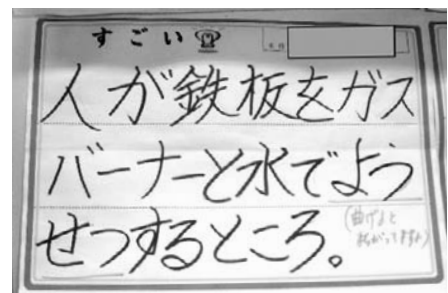 すごい
人が鉄板をガス
バーナーと水でよう
せつするところ。
(曲げると